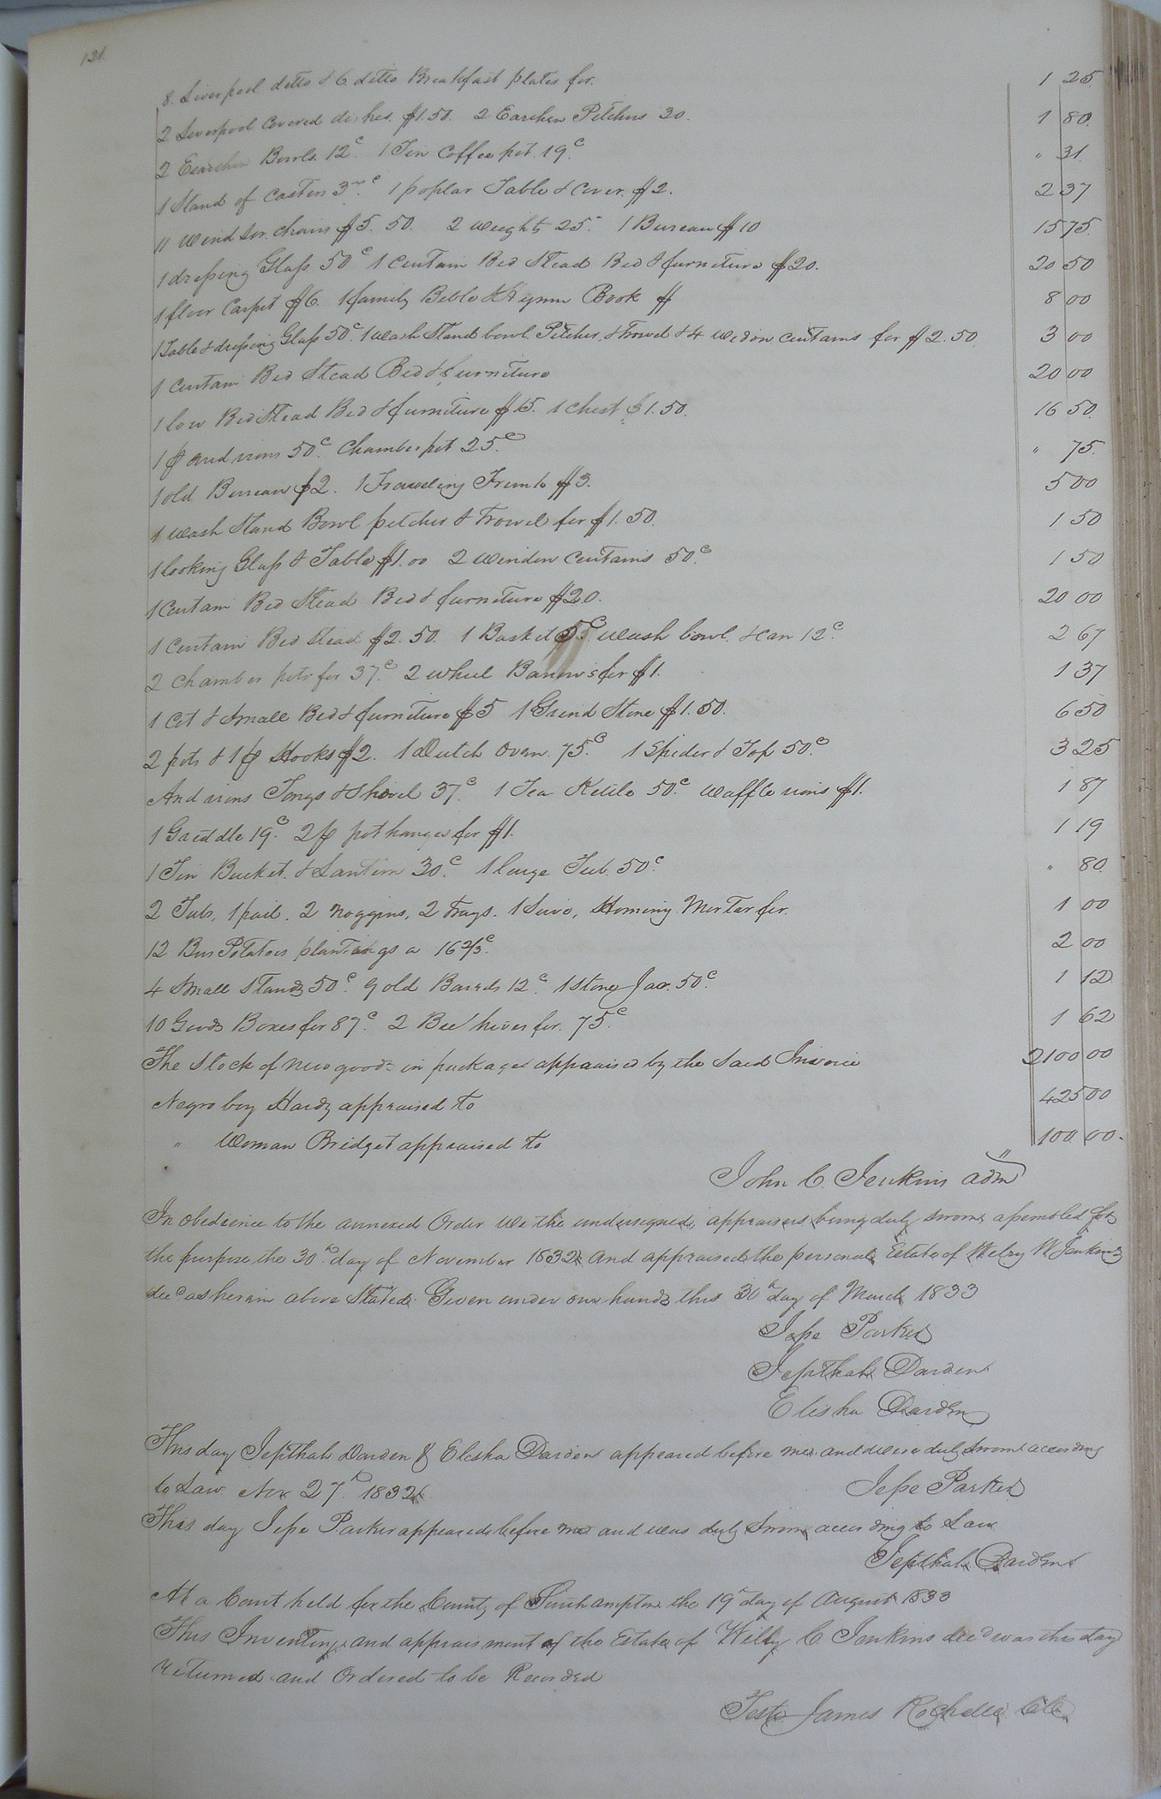 121.
8 Liverpool ditto & 6 ditto Breakfast plates for. 1 25
2 Liverpool Covered dishes $1.50. 2 Earthen Pitchers 30. 1 80.
2 Earthen Bowls. 12c. 1 Tin Coffee pot. 19c. " 31
1 Stand of Castors 37c. 1 poplar Table & Cover. $2. 2 37
11 Windsor. chairs $5.50. 2 weights 25. 1 Bureau $10 15 75
1 dressing Glass 50c 1 Curtain Bed Stead Bed & furniture $20. 20 50
1 floor Carpet $6. 1 family Bible & Hymn Book $ 8 00
1 Table & dressing Glass 50c. 1 Wash Stand bowl. Pitcher, & Trowel & 4 window curtains for $2.50 3 00
1 Curtain Bed Stead Bed & furniture 20 00
1 low Bed Stead Bed & furniture $15. 1 Chest $1.50. 16 50.
1 p andirons 50c. Chamber pot 25c " 75.
1 old Bureau $2. 1 Traveling Trunk $3. 5 00
1 wash Stand Bowl pitcher & Trowel for $1.50. 1 50
1 looking Glass & Table $1.00 2 window Curtains 50c. 1 50
1 Curtain Bed Stead Bed & furniture $20. 20 00
1 Curtain Bed Stead $2.50. 1 Basket 5c. wash bowl. & can 12c. 2 67
2 chamber pots for 37c. 2 wheel Barrows for $1. 1 37
1 Cot & Small Bed & furniture $5 1 Grind Stone $1.50. 6 50
2 pots & 1 p Hooks $2. 1 Dutch Oven. 75c. 1 Spider & Top 50c. 3 25
Andirons Tongs & Shovel 37c. 1 Tea Kettle 50c. waffle irons $1. 1 87
1 Griddle 19c. 2 p pot hangers for $1. 1 19
1 Tin Bucket. & Lantern 30c. 1 large Tub. 50c. " 80
2 Tubs, 1 pail. 2 noggins, 2 Trays. 1 Sieve, Hominy Mortar for. 1 00
12 Bus Potatoes plantings a 16 2/3c. 2 00
4 Small Stands 50c. 9 old Barrels 12c. 1 Stone Jar. 50c. 1 12
10 Goods Boxes for 87c. 2 Bee hives for. 75c 1 62
The Stock of new goods in packages appraised by the said Invoice 2100 00
Negro boy Hardy appraised to 425 00
" Woman Bridget appraised to 100 00.
John C. Jenkins adm
In obedience to the annexed Order We the undersigned, appraisers being duly sworn, assembled for
the purpose the 30th day of November 1832 and appraised the personal Estate of Welry W Jenkins
decd as herein above Stated. Given under our hands this 30th day of March 1833
Jesse Parker
Jepthah Darden
Elisha Darden
This day Jepthah Darden & Elisha Darden appeared before me and were duly Sworn according
to Law Nov 27th 1832
Jesse Parker
This day Jesse Parker appeared before me and was duly Sworn according to Law
Jepthah Darden
At a Court held for the County of Southampton the 19th day of August 1833
This Inventory and appraisment of the Estate of Willy C Jenkins decd was this day
returned and Ordered to be Recorded
Teste James Rochelle Clk